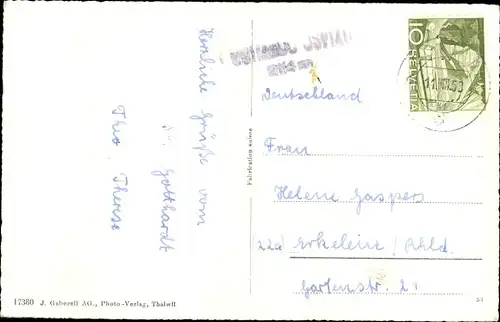 Herzliche Grüße vom
St. Gotthardt
Theo, Therese
10 HELVETIA
Deutschland
Frau
Helene Gaspers
(22a) Erkelenz/Rhld.
Gartenstr. 21
Fabrication suisse
17380 J. Gaberell AG., Photo-Verlag, Thalwil